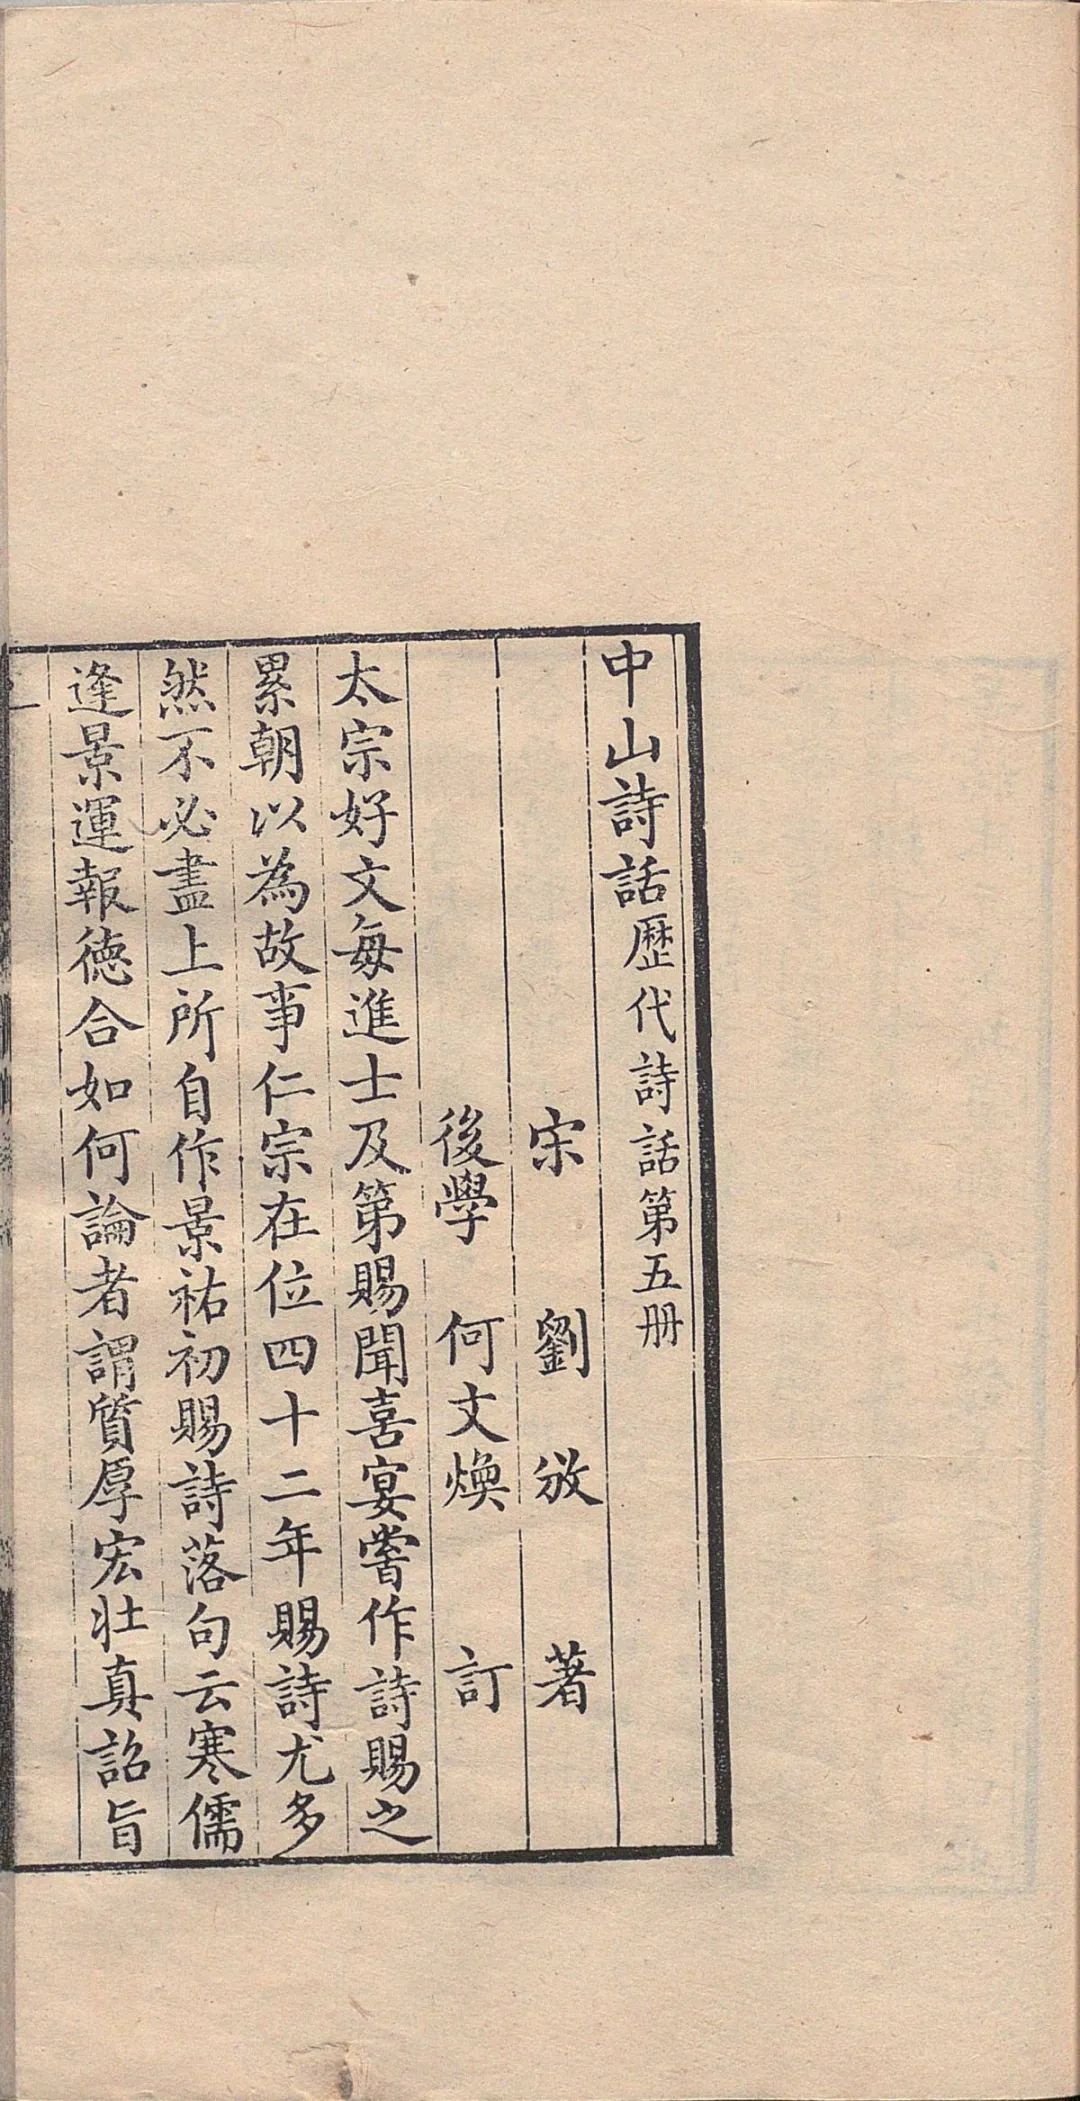 中山詩話歷代詩話第五册
宋 劉攽 著
後學 何文煥 訂
太宗好文每進士及第賜聞喜宴嘗作詩賜之
累朝以為故事仁宗在位四十二年賜詩尤多
然不必盡上所自作景祐初賜詩落句云寒儒
逢景運報德合如何論者謂質厚宏壯真詔旨